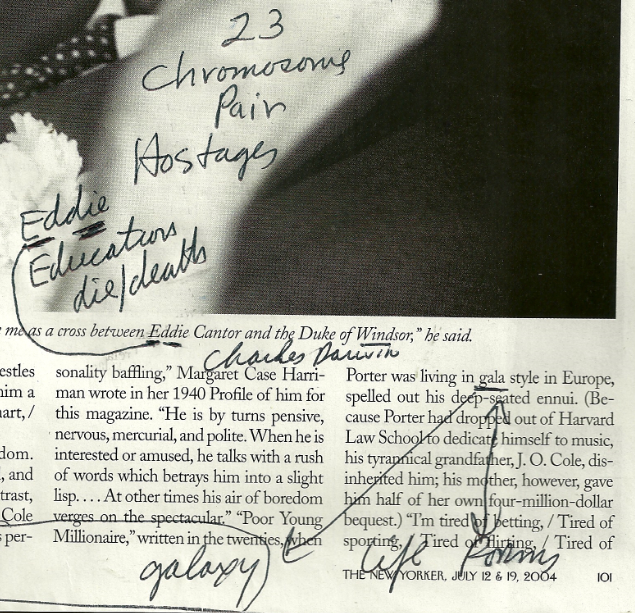 23
Chromosome
Pair
Hostages
Eddie
Education
die/death
me as a cross between Eddie Cantor and the Duke of Windsor," he said.
Charles Darwin
estles
him a
art, /
dom.
, and
trast,
Cole
per-
sonality baffling," Margaret Case Harri-
man wrote in her 1940 Profile of him for
this magazine. "He is by turns pensive,
nervous, mercurial, and polite. When he is
interested or amused, he talks with a rush
of words which betrays him into a slight
lisp.... At other times his air of boredom
verges on the spectacular." "Poor Young
Millionaire," written in the twenties, when
galaxy
Porter was living in gala style in Europe,
spelled out his deep-seated ennui. (Be-
cause Porter had dropped out of Harvard
Law School to dedicate himself to music,
his tyrannical grandfather, J. O. Cole, dis-
inherited him; his mother, however, gave
him half of her own four-million-dollar
bequest.) "I'm tired of betting, / Tired of
sporting, / Tired of flirting, / Tired of
life Forms
THE NEW YORKER, JULY 12 & 19, 2004 101